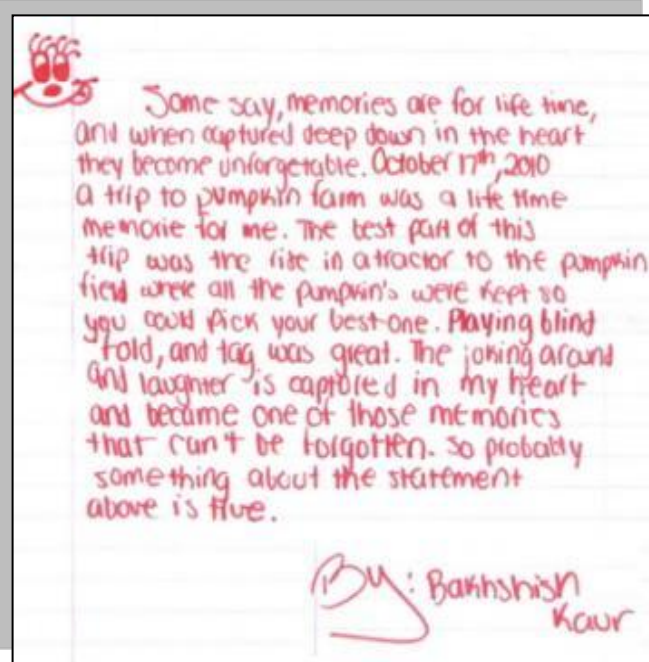 Some say, memories are for life time,
and when captured deep down in the heart
they become unforgetable. October 17th, 2010
a trip to pumpkin farm was a life time
memorie for me. The best part of this
trip was the ride in a tractor to the pumpkin
field where all the pumpkin's were kept so
you could pick your best one. Playing blind
fold, and tag was great. The joking around
and laughter is captured in my heart
and became one of those memories
that can't be forgotten. So probably
something about the statement
above is true.
By: Bakhshish
Kaur